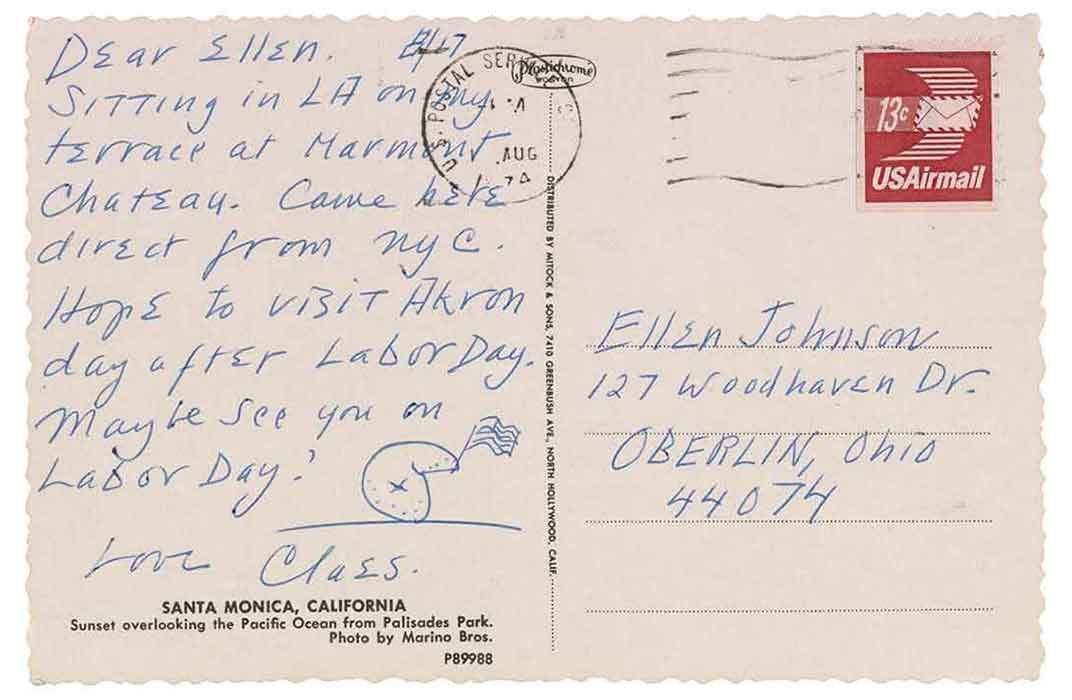 Dear Ellen. 8/17
Sitting in LA on my
terrace at Marmont
Chateau. Came here
direct from NYC.
Hope to visit Akron
day after Labor Day.
Maybe see you on
Labor Day!
Love Claes.
SANTA MONICA, CALIFORNIA
Sunset overlooking the Pacific Ocean from Palisades Park.
Photo by Marino Bros.
P89988
Plastichrome
BOSTON
DISTRIBUTED BY MITOCK & SONS, 7410 GREENBUSH AVE., NORTH HOLLYWOOD, CALIF.
U.S. POSTAL
AUG
13c
USAirmail
Ellen Johnson
127 Woodhaven Dr.
OBERLIN, Ohio
44074